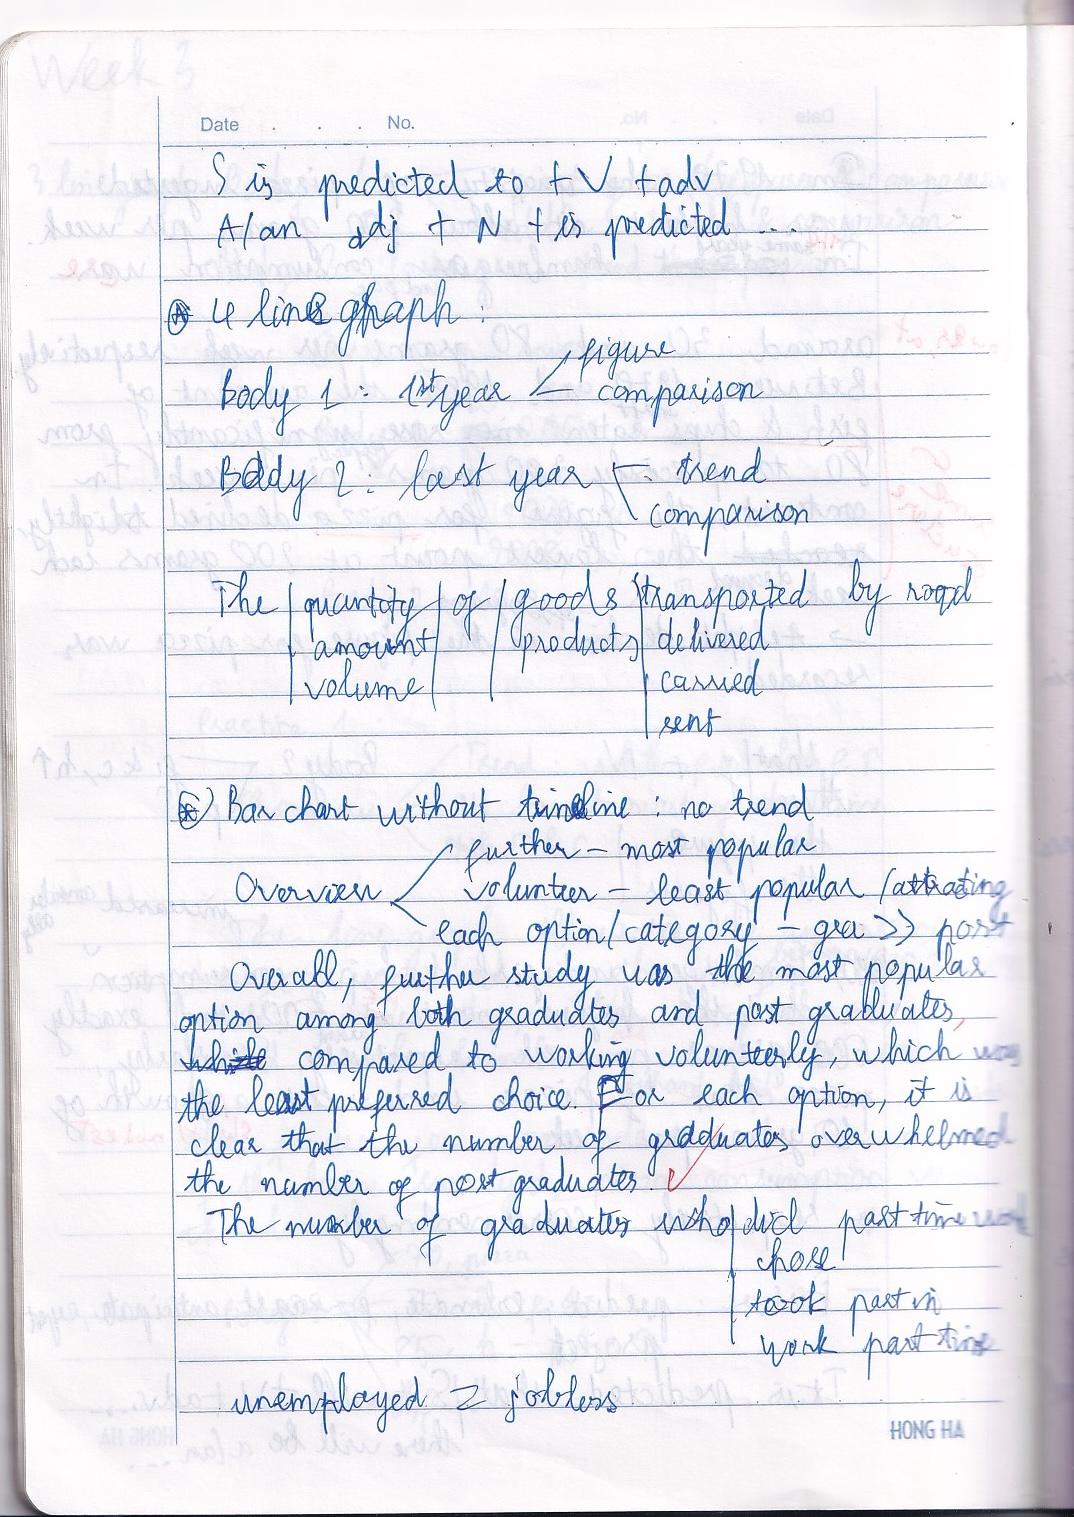 Week 3
Date . . . No.
S is predicted to + V + adv
A/an adj + N + is predicted ...
4 lines graph :
Body 1 : 1st year < figure
comparison
Body 2 : last year < trend
comparison
The | quantity | of | goods | transported by road
amount products delivered
volume carried
sent
Bar chart without timeline : no trend
further - most popular
Overview < volunteer - least popular / attracting
each option/category - gra >> post
Overall, further study was the most popular
option among both graduates and post graduates,
compared to working volunteerly, which was
the least preferred choice. For each option, it is
clear that the number of graduates overwhelmed
the number of post graduates.
The number of graduates who | did part time work
chose
took part in
work part time
unemployed = jobless
HONG HA